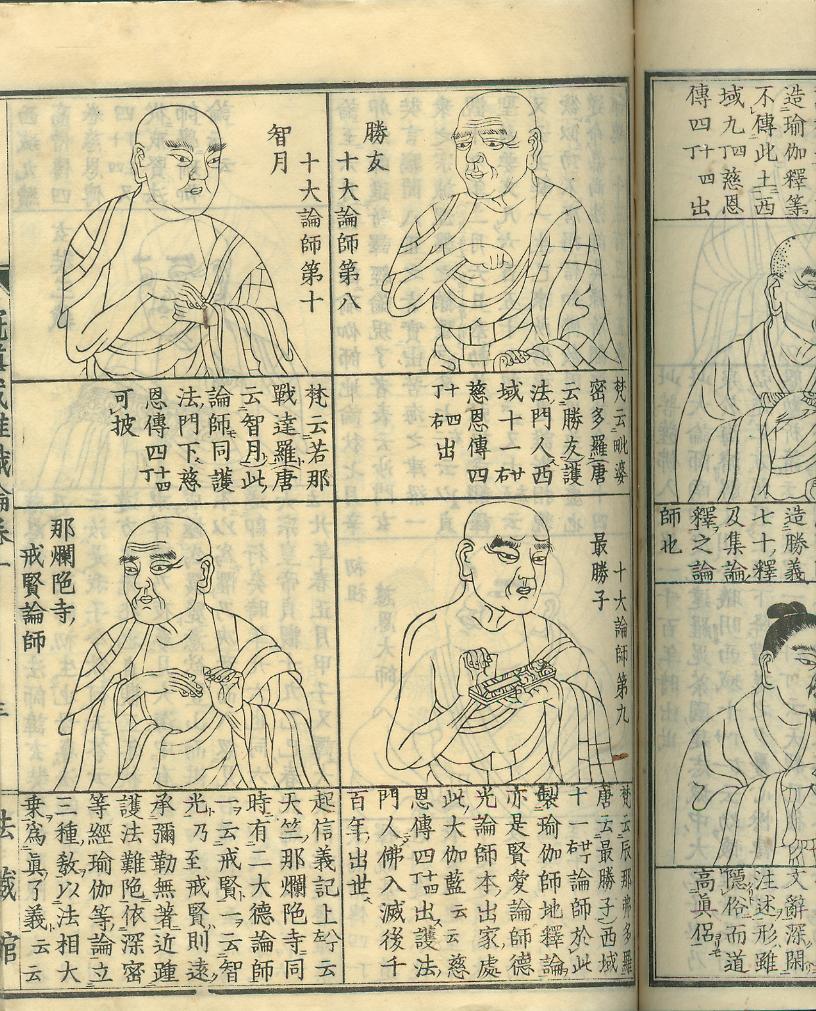 造瑜伽釋等
不傳此土西
域九十四慈恩
傳四丁十四出
造勝義
七十釋
及集論
釋之論
師也
文辭深閑
注述形雖
隱俗而道
高眞侶
勝友
十大論師第八
梵云毗婆
密多羅唐
云勝友護
法門人西
域十一右
慈恩傳四
丁十四出
右
十大論師第十
智月
梵云若那
戰達羅唐
云智月此
論師同護
法門下慈
恩傳四十四丁
可披
十大論師第九
最勝子
梵云辰那弗多羅
唐云最勝子西域
十一右論師於此
製瑜伽師地釋論
亦是賢愛論師德
光論師本出家處
此大伽藍云云慈
恩傳四十四丁出護法
門人佛入滅後千
百年出世
那爛陁寺
戒賢論師
起信義記上云
天竺那爛陁寺同
時有二大德論師
一云戒賢一云智
光乃至戒賢則遠
承彌勒無著近踵
護法難陁依深密
等經瑜伽等論立
三種敎以法相大
乘爲眞了義云云
三
法藏館